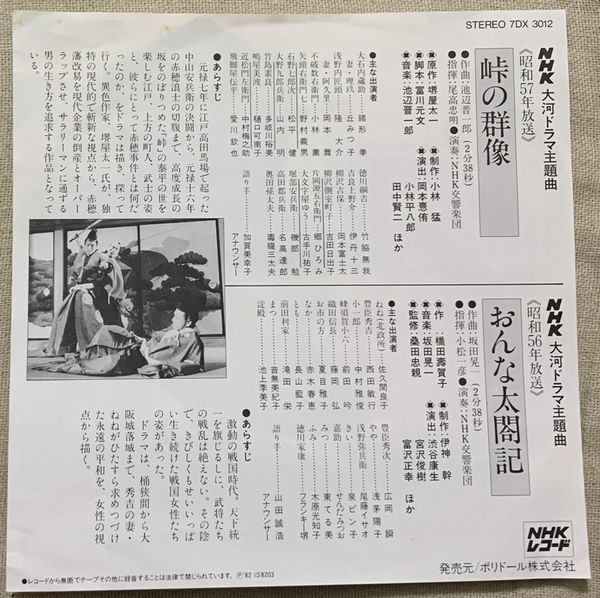 STEREO 7DX 3012
NHK 大河ドラマ主題曲
《昭和57年放送》
峠の群像
●作曲:池辺晋一郎(2分38秒)
●指揮:尾高忠明●演奏:NHK交響楽団
■原作:堺屋太一
■脚本:冨川元文
■音楽:池辺晋一郎
■制作:小林 猛
■演出:岡本憙侑
小林平八郎
田中賢二 ほか
■主な出演者
大石内蔵助 緒形 拳
妻・理玖 丘 みつ子
浅野内匠頭 隆 大介
妻・阿久里 小林 薫
不破数右衛門 小林 薫
矢頭右衛門七 野村義男
石野七郎次 松平 健
大野九郎兵衛 山内 明
竹島素良 多岐川裕美
鳴屋美波 樋口可南子
近松門左衛門 中村梅之助
飛脚屋伝平 愛川欽也
徳川綱吉 竹脇無我
吉良上野介 伊丹十三
柳沢吉保 岡本富士太
柳沢側室町子 吉田日出子
片岡源五右衛門 郷 ひろみ
大文字屋ゆう 古手川祐子
堀部安兵衛 磯部 勉
高田郡兵衛 名高達郎
奥田孫太夫 毒蝮三太夫
語り手 加賀美幸子
アナウンサー
●あらすじ
元禄七年に江戸高田馬場で起った
中山安兵衛の決闘から、元禄十六年
の赤穂浪士の切腹まで、高度成長の
坂をのぼりつめた「峠」の泰平の世を
楽しむ江戸、上方の町人、武士の姿
と、彼らにとって赤穂事件とは何だ
ったのか、をドラマは描き、探って
行く。異色作家、堺屋太一氏が、独
特の現代的で斬新な視点から、赤穂
藩改易を現代企業の倒産とオーバー
ラップさせ、サラリーマンに通ずる
男の生き方を追求する作品となって
いる。
NHK 大河ドラマ主題曲
《昭和56年放送》
おんな太閤記
●作曲:坂田晃一(2分38秒)
●指揮:小松一彦●演奏:NHK交響楽団
■作:橋田壽賀子
■音楽:坂田晃一
■監修:桑田忠親
■制作:伊神 幹
■演出:渋谷康生
宮沢俊樹
富沢正幸 ほか
■主な出演者
ねね(北政所) 佐久間良子
豊臣秀吉 西田敏行
小一郎 中村雅俊
蜂須賀小六 前田 吟
織田信長 藤岡 弘
お市の方 夏目雅子
なか 赤木春恵
とも 長山藍子
前田利家 滝田 栄
まつ 音無美紀子
淀殿 池上季実子
豊臣秀次 広岡 瞬
やや 浅茅陽子
浅野弥兵衛 尾藤イサオ
きい 泉 ピン子
嘉助 せんだみつお
みつ 東 てる美
ふみ 木原光知子
徳川家康 フランキー堺
語り手 山田誠浩
アナウンサー
●あらすじ
激動の戦国時代。天下統
一を旗じるしに、武将たち
の戦乱は絶えない。その陰
で、きびしくもせいいっぱ
い生き続けた戦国女性たち
の姿があった。
ドラマは、桶狭間から大
阪城落城まで、秀吉の妻・
ねねがひたすら求めつづけ
た永遠の平和を、女性の視
点から描く。
NHK
レコード
発売元/ポリドール株式会社
●レコードから無断でテープその他に録音することは法律で禁じられています。 Ⓟ'82 IS8203